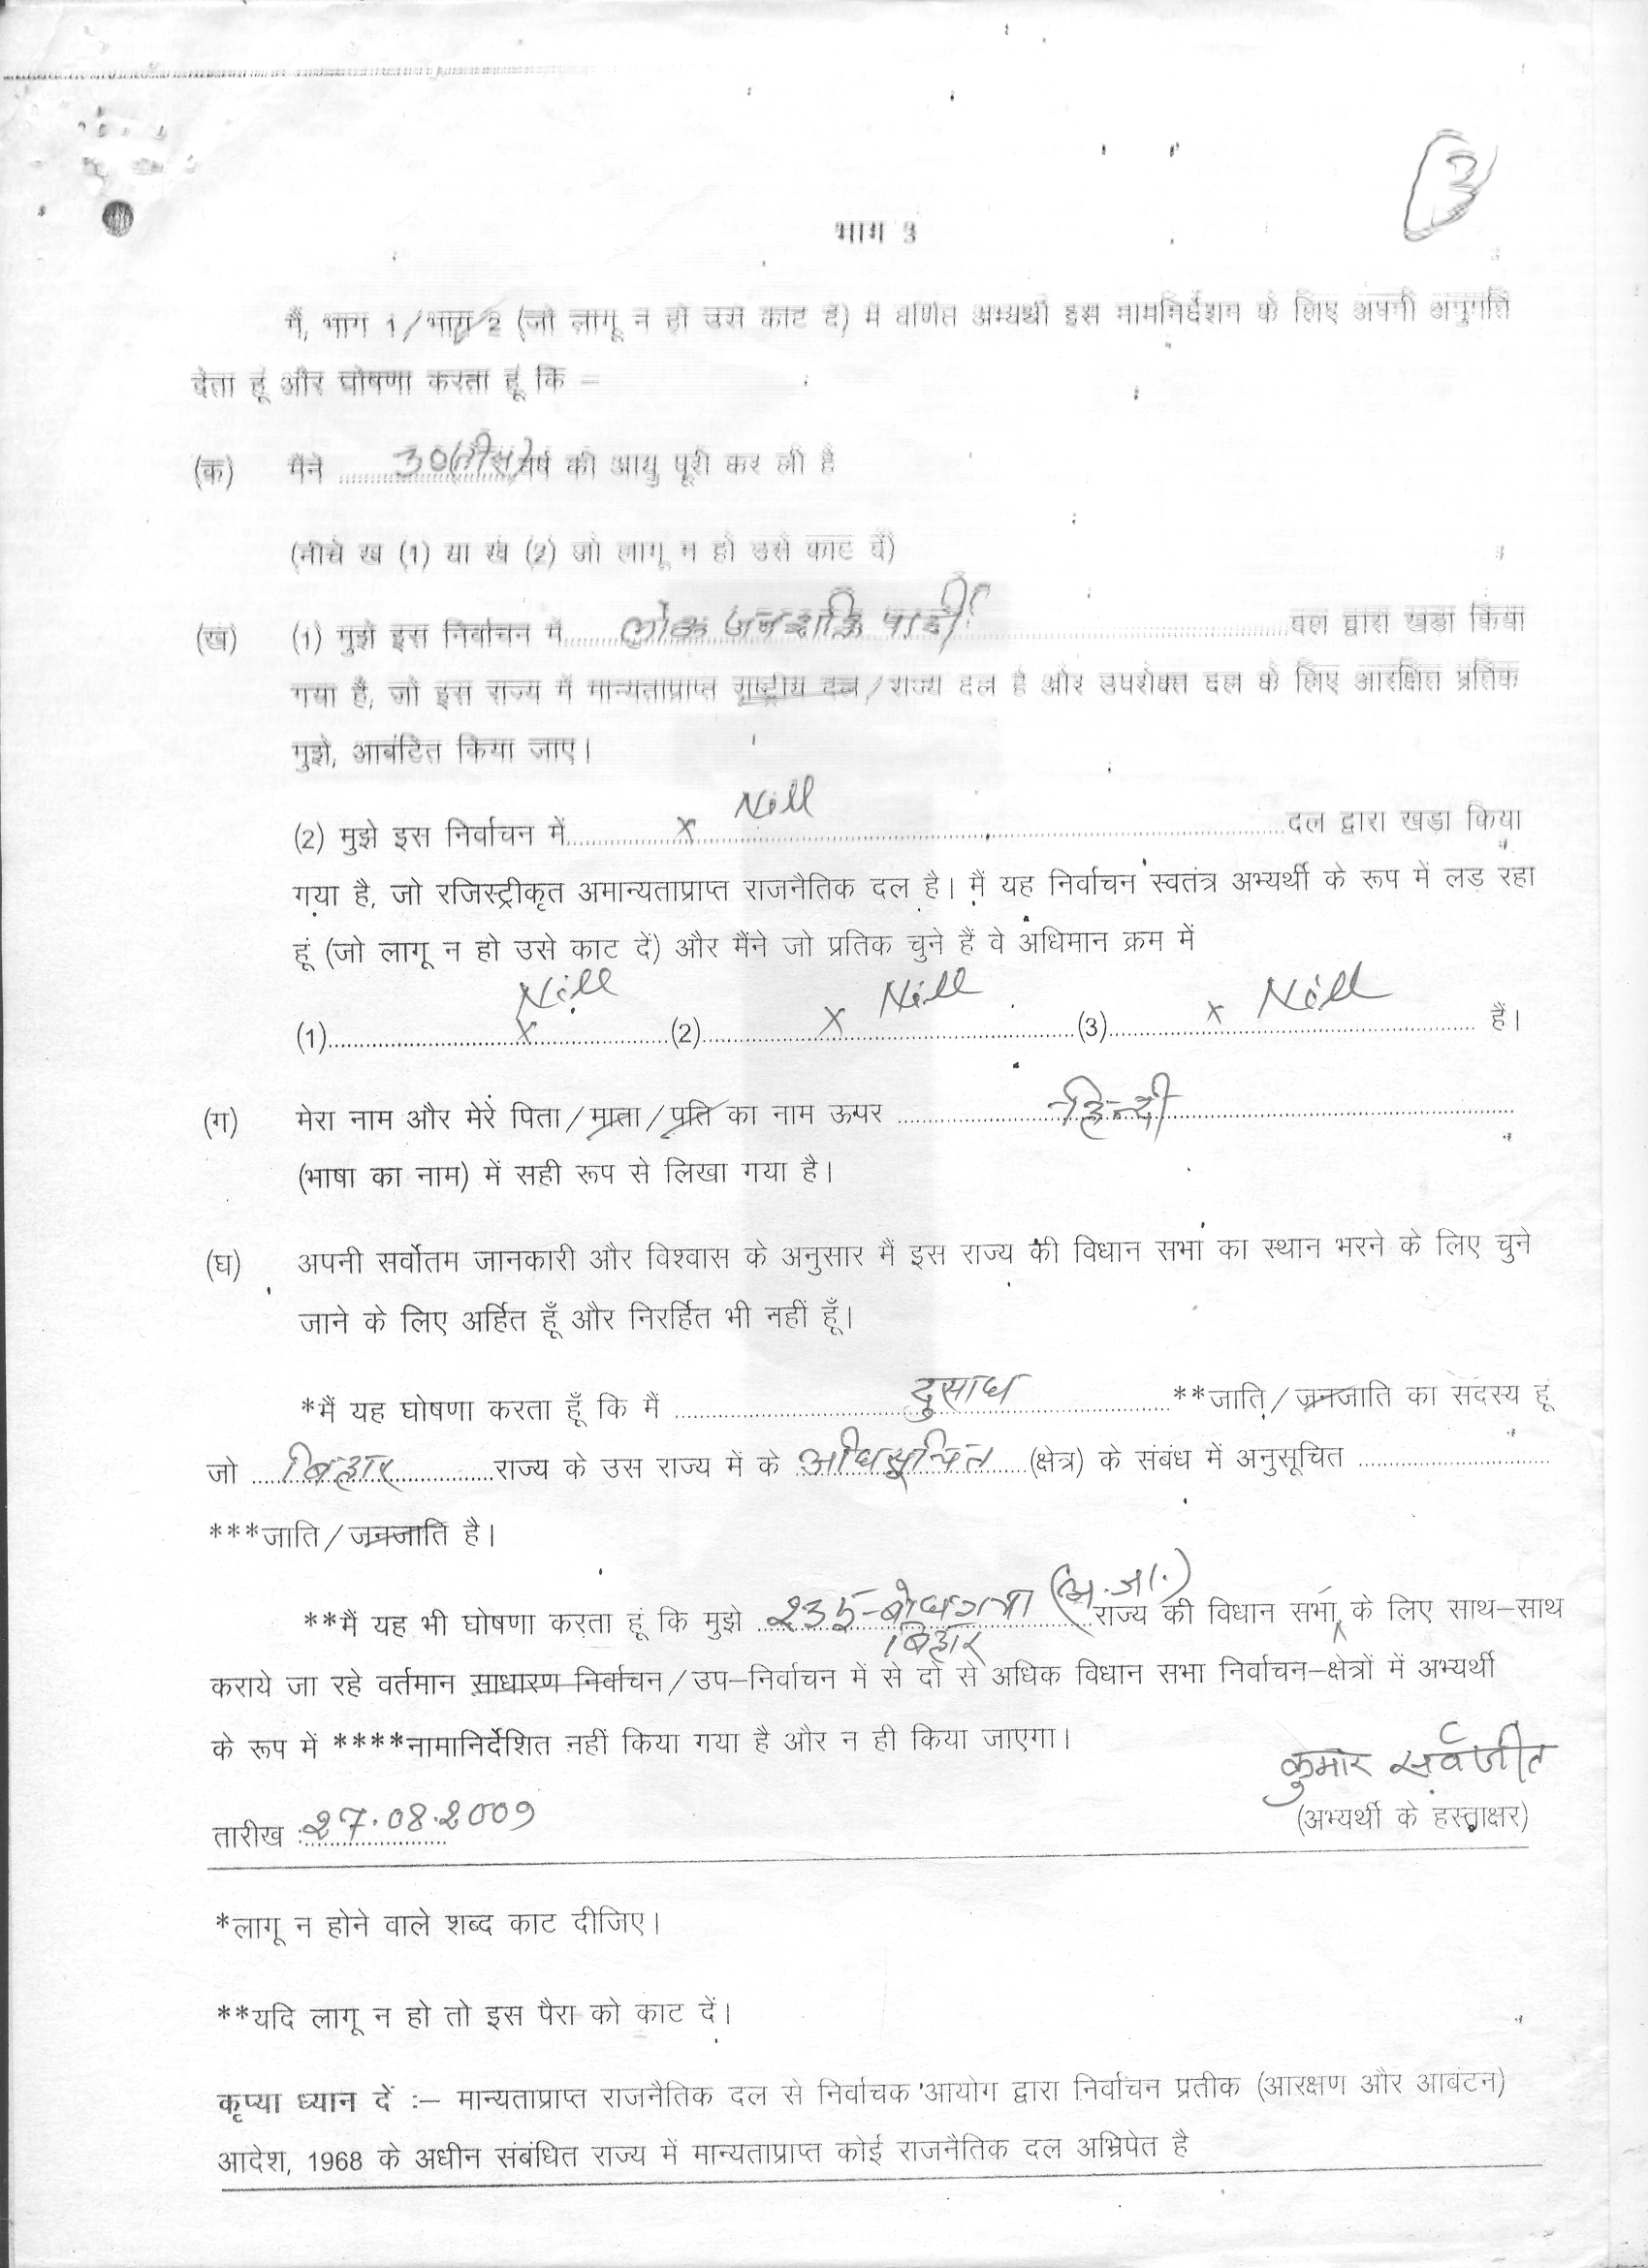 3
भाग 3
मैं, भाग 1/भाग 2 (जो लागू न हो उसे काट दें) में वर्णित अभ्यर्थी इस नामनिर्देशन के लिए अपनी अनुमति
देता हूं और घोषणा करता हूं कि –
(क) मैंने 30(तीस) वर्ष की आयु पूरी कर ली है
(नीचे ख (1) या ख (2) जो लागू न हो उसे काट दें)
(ख) (1) मुझे इस निर्वाचन में लोक जनशक्ति पार्टी दल द्वारा खड़ा किया
गया है, जो इस राज्य में मान्यताप्राप्त राष्ट्रीय दल/राज्य दल है और उपरोक्त दल के लिए आरक्षित प्रतिक
मुझे, आबंटित किया जाए।
(2) मुझे इस निर्वाचन में x Nill दल द्वारा खड़ा किया
गया है, जो रजिस्ट्रीकृत अमान्यताप्राप्त राजनैतिक दल है। मैं यह निर्वाचन स्वतंत्र अभ्यर्थी के रूप में लड़ रहा
हूं (जो लागू न हो उसे काट दें) और मैंने जो प्रतिक चुने हैं वे अधिमान क्रम में
(1) x Nill (2) x Nill (3) x Nill हैं।
(ग) मेरा नाम और मेरे पिता/माता/पति का नाम ऊपर हिन्दी
(भाषा का नाम) में सही रूप से लिखा गया है।
(घ) अपनी सर्वोतम जानकारी और विश्वास के अनुसार मैं इस राज्य की विधान सभा का स्थान भरने के लिए चुने
जाने के लिए अर्हित हूँ और निरर्हित भी नहीं हूँ।
*मैं यह घोषणा करता हूँ कि मैं दुसाध **जाति/जनजाति का सदस्य हूं
जो बिहार राज्य के उस राज्य में के अधिसूचित (क्षेत्र) के संबंध में अनुसूचित
***जाति/जनजाति है।
**मैं यह भी घोषणा करता हूं कि मुझे 235-बोधगया (अ.जा.) बिहार राज्य की विधान सभा के लिए साथ–साथ
कराये जा रहे वर्तमान साधारण निर्वाचन/उप–निर्वाचन में से दो से अधिक विधान सभा निर्वाचन–क्षेत्रों में अभ्यर्थी
के रूप में ****नामानिर्देशित नहीं किया गया है और न ही किया जाएगा।
कुमार सर्वजीत
तारीख : 27.08.2009 (अभ्यर्थी के हस्ताक्षर)
*लागू न होने वाले शब्द काट दीजिए।
**यदि लागू न हो तो इस पैरा को काट दें।
कृप्या ध्यान दें :– मान्यताप्राप्त राजनैतिक दल से निर्वाचक आयोग द्वारा निर्वाचन प्रतीक (आरक्षण और आवंटन)
आदेश, 1968 के अधीन संबंधित राज्य में मान्यताप्राप्त कोई राजनैतिक दल अभिप्रेत है